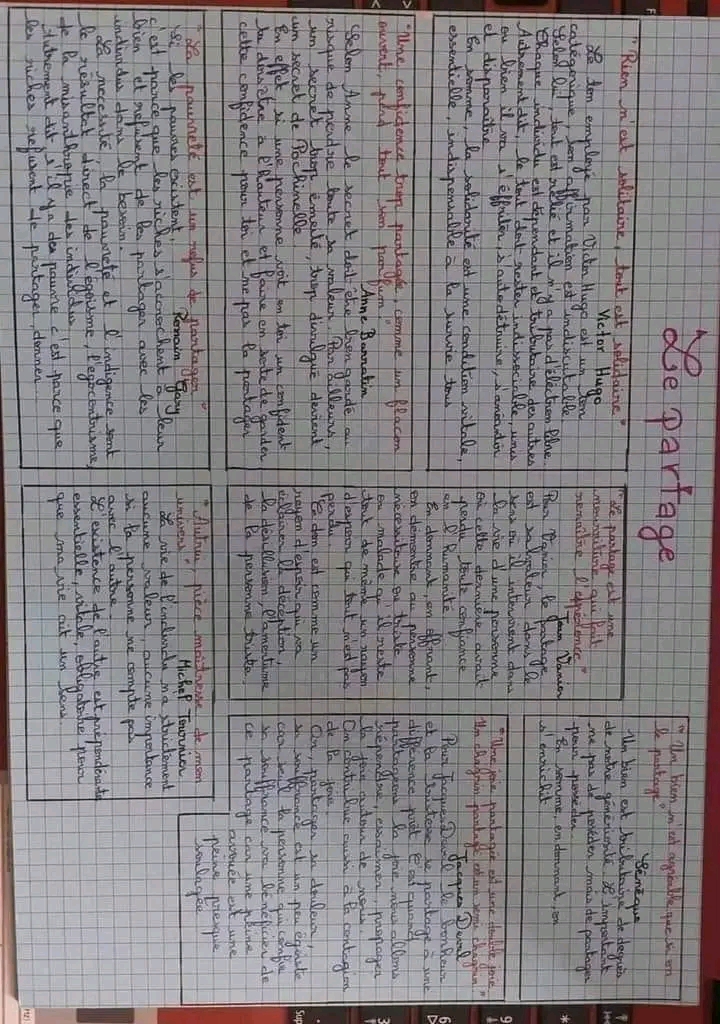 Le partage
"Rien n'est solitaire, tout est solidaire"
Victor Hugo
Le ton employé par Victor Hugo est un ton
catégorique, son affirmation est indiscutable
Selon lui, tout est relié et il n'y a pas d'électron libre.
Chaque individu est dépendant et tributaire des autres
Autrement dit, le tout doit rester indissociable, unis
ou bien il va s'effriter, s'autodétruire, s'anéantir
et disparaître
En somme, la solidarité est une condition vitale,
essentielle, indispensable à la survie tous
"Une confidence trop partagée, comme un flacon
ouvert, perd tout son parfum."
Anne Barratin
Selon Anne le secret doit être bien gardé au
risque de perdre toute sa valeur. Par ailleurs,
un secret trop émietté, trop divulgué devient
un secret de Pochinelle
En effet si une personne voit en toi un confident
tu dois être à l'hauteur et faire en sorte de garder
cette confidence pour toi et ne pas la partager
"La pauvreté est un refus de partager"
Romain Gary
Si les pauvres existent,
c'est parce que les riches s'accrochent à leur
bien et refusent de les partager avec les
individus dans le besoin.
La nécessité, la pauvreté et l'indigence sont
le résultat direct de l'égoïsme, l'égocentrisme,
de la misanthropie des individus
Autrement dit s'il y a des pauvre c'est parce que
les riches refusent de partager, donner...
"Le partage est une
nourriture qui fait
renaître l'espérance"
Jean Vanier
Pour Vanier, le partage
est sa valeur dans le
sens où il intervient dans
la vie d'une personne
où cette dernière avait
perdu toute confiance
en l'humanité
En donnant, en offrant,
on démontre au personne
nécessiteuse ou triste
ou malade qu'il reste
tout de même un rayon
d'espoir qui tout n'est pas
perdu
Ce don est comme un
rayon d'espoir qui va
éclairer la déception,
la désillusion, l'amertume
de la personne triste
"Autrui, pièce maîtresse de mon
univers"
Michel Tournier
La vie de l'individu n'a strictement
aucune valeur, aucune importance
si la personne ne compte pas
avec l'autre
L'existence de l'autre est prépondérante
essentielle, vitale, obligatoire pour
que ma vie ait un sens
"Un bien n'est agréable que si on
le partage"
Sénèque
Un bien est tributaire de degrés
de notre générosité L'important
ne pas de posséder mais de partager
pour posséder
En somme, en donnant, on
s'enrichit
"Une joie partagée est une double joie
Un chagrin partagé est un demi chagrin"
Jacques Deval
Pour Jacques Deval le bonheur
et la tristesse se partage à une
différence prêt C'est quand
partageons la joie nous allons
répandre, essaimer, propager
la joie autour de nous.
On contribue aussi à la contagion
de la joie.
Or, partager sa douleur,
sa souffrance est un peu égoïste
car seule la personne qui confie
sa souffrance va bénéficier de
ce partage car une peine
avouée est une
peine presque
soulagée